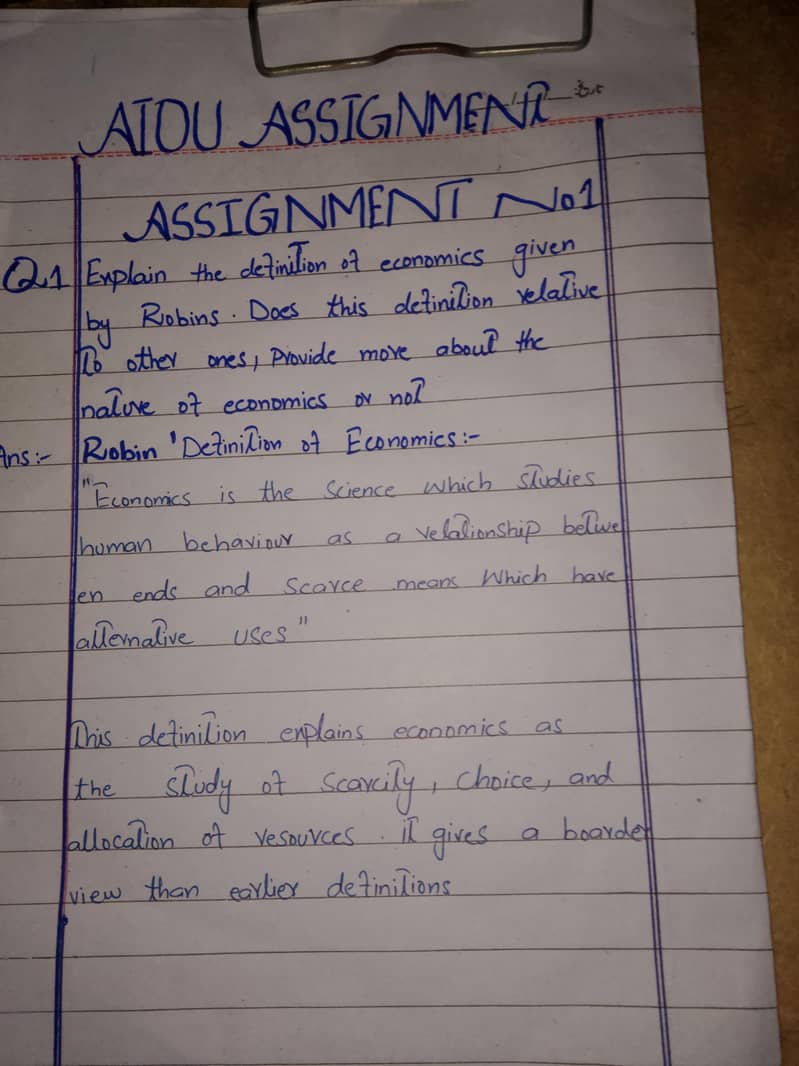 AIOU ASSIGNMENT
ASSIGNMENT No1
Q.1 Explain the definition of economics given
by Robins. Does this definition relative
To other ones, Provide more about the
nature of economics or not
Ans:- Robin 'Definition of Economics:-
"Economics is the Science which studies
human behaviour as a relationship betwe
en ends and Scarce means which have
alternative uses"
This definition explains economics as
the study of Scarcity, choice, and
allocation of resources. it gives a boarder
view than earlier definitions